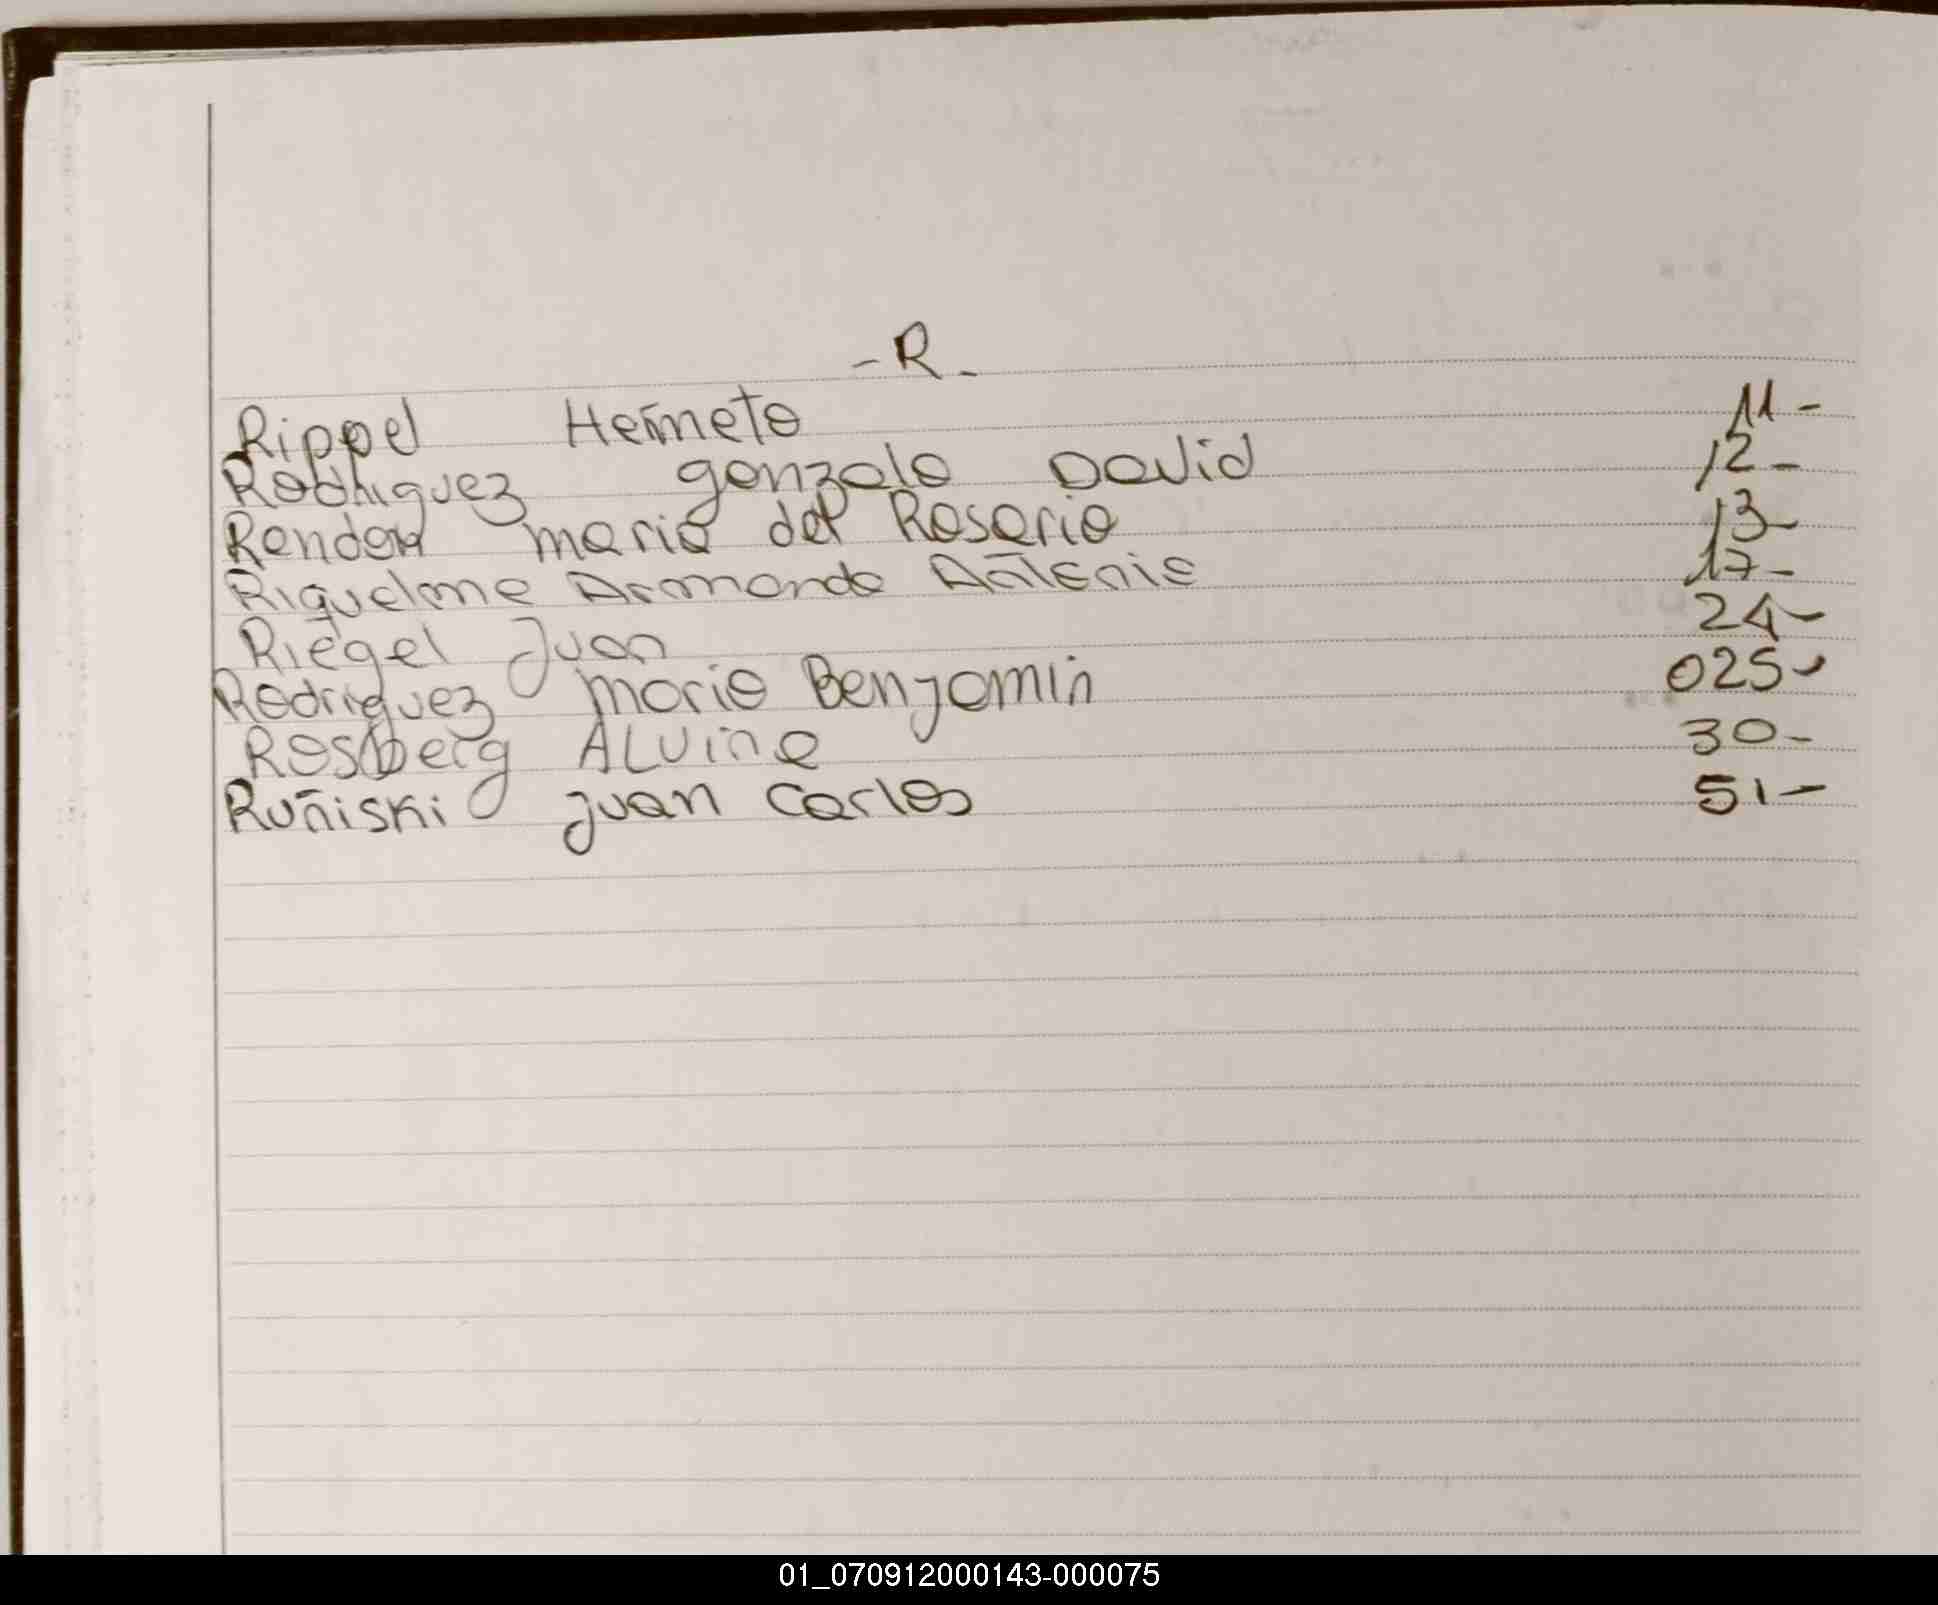 -R-
Rippel Hermeto 11-
Rodriguez gonzalo David 12-
Rendon maria del Rosario 13-
Riquelme Armando Antonio 17-
Riegel Juan 24-
Rodriguez Mario Benjamin 025-
Rosberg ALvina 30-
Ruñiski Juan Carlos 51-
01_070912000143-000075